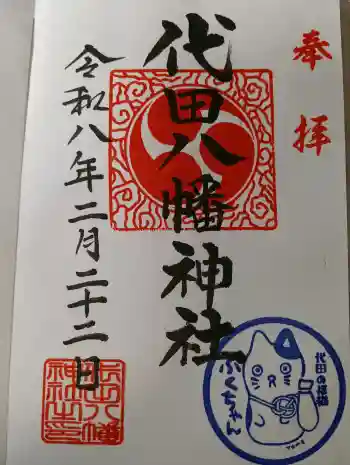 奉拝
代田八幡神社
令和八年二月二十二日
代田の招猫
ふくちゃん